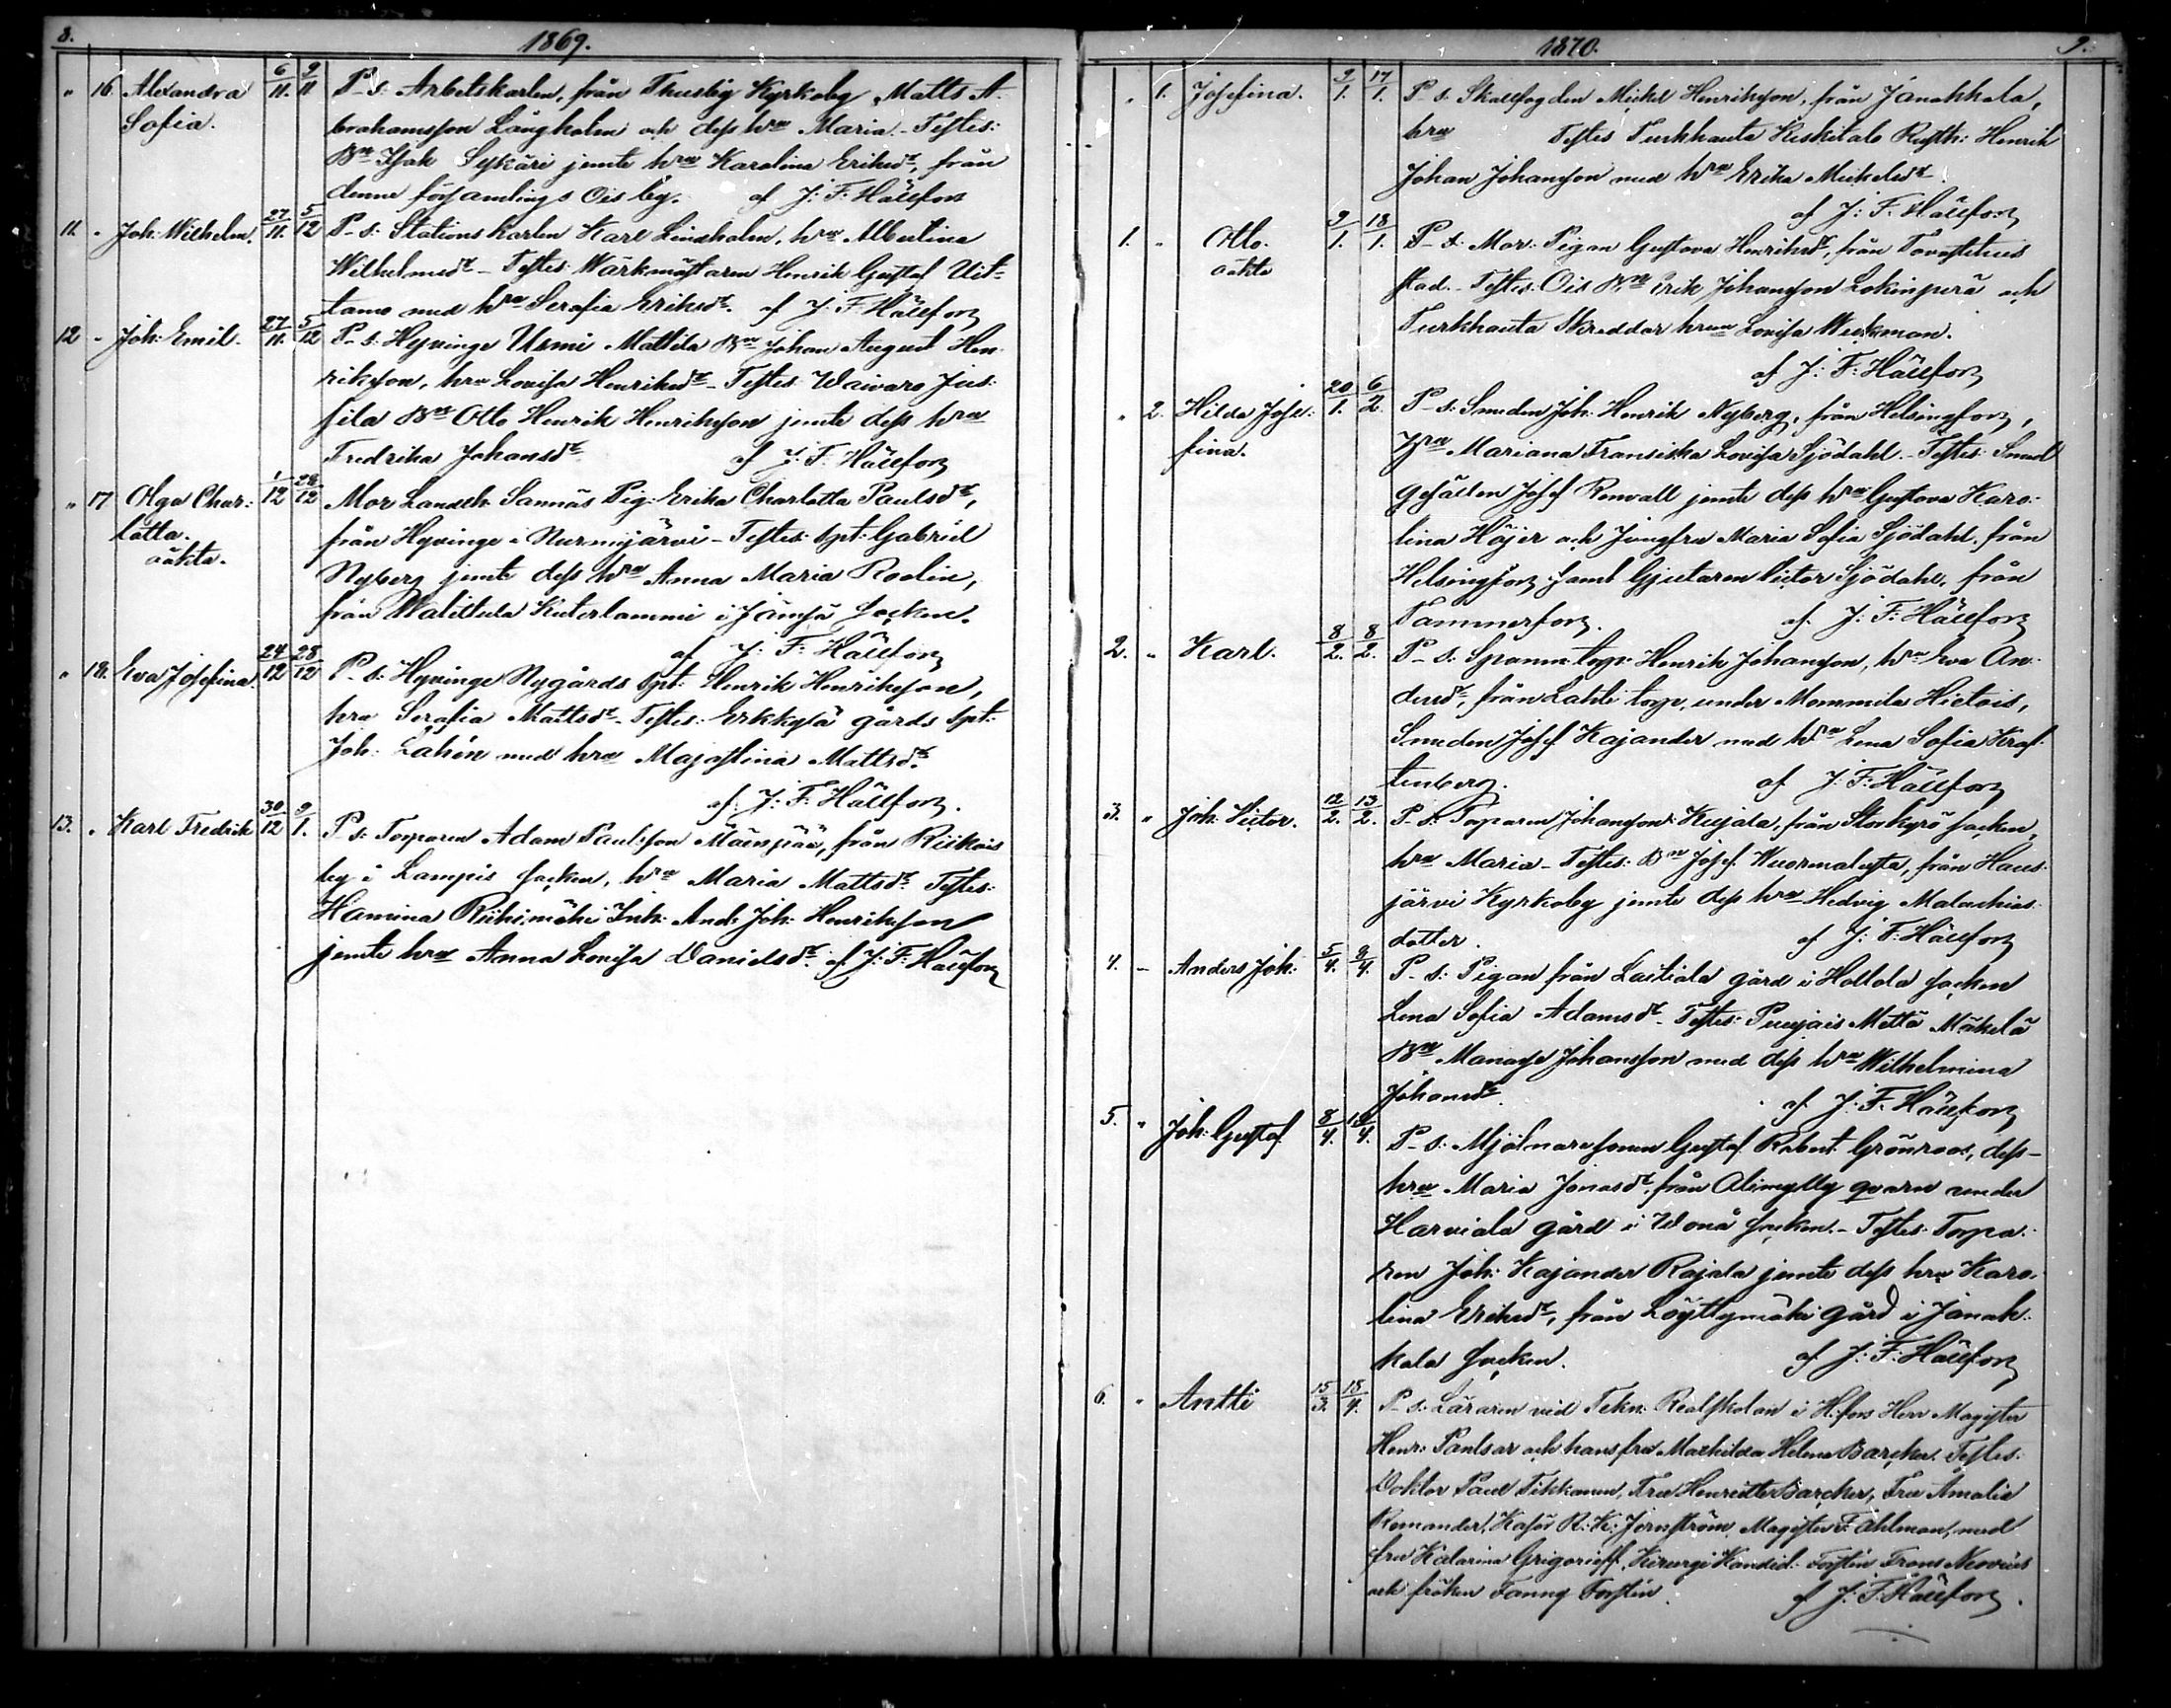 8. 1869.
" 16 Alexandra 6/11. 9/11 P-s: Arbetskarlen, från Thusby Kyrkoby Matts A-
Sofia. brahamsson Långholm och dess hru Maria. Testes:
Bn Isak Sykäri jemte hru Karolina Eriksdr, från
denne församlings Ois by. af J: F: Hällfors
11. " Joh: Wilhelm. 27/11. 5/12 P-s: Stationskarlen Karl Lindholm, hru Albertina
Wilhelmsdr - Testes: Wärkmästaren Henrik Gustaf Uit-
tamo med hru Serafia Eriksdr. af J: F: Hällfors
12 " Joh: Emil. 27/11. 5/12 P-s: Hyvinge Usmi Mattila Bn Johan August Hen-
riksson, hru Lovisa Henriksdr - Testes: Waivaro Jus-
sila Bn Otto Henrik Henriksson jemte dess hru
Fredrika Johansdr af J: F: Hällfors
" 17 Olga Char- 1/12 28/12 Mor Landth: Sannäs Pig: Erika Charlotta Paulsdr,
lotta. från Hyvinge i Nurmijärvi - Testes: Spt: Gabriel
oäkta. Nyberg jemte dess hru Anna Maria Roslin,
från i Jämsä socken.
af J: F: Hällfors
" 18. Eva Josefina. 24/12 28/12 P-s: Hyvinge Nygårds Spt: Henrik Henriksson,
hru Serafia Mattsdr - Testes: Erkkylä gårds Spt:
Joh: Lahén med hru Majastina Mattsdr.
af: J: F: Hällfors.
13. " Karl Fredrik 30/12 9/1. P-s: Torparen Adam Paulsson Mäenpää, från Riikois
by i Lampis socken, hru Maria Mattsdr. Testes:
Hamina Riihimäki Inh: And: Joh: Henriksson
jemte hru Anna Lovisa Danielsdr. af J: F: Hällfors
1870. 9.
" 1. Josefina. 9/1. 17/1. P-s: Skallfogden Mickel Henriksson, från Janakkala,
hru Testes Turkhauta Kiskitalo Rusth: Henrik
Johan Johansson med hru Erika Mickelsdr.
af J: F: Hällfors
1. " Otto. 9/1. 18/1. P-s: Mor: Pigan Gustava Henriksdr, från Tavastehus
oäkta stad. - Testes: Ois Bn Erik Johansson Lokinperä och
Turkhauta Skreddar hrun Lovisa Weckman.
af J: F: Hällfors
" 2. Hilda Jose- 20/1. 6/2. P-s: Smeden Joh: Henrik Nyberg, från Helsingfors,
fina. hru Mariana Fransiska Lovisa Sjödahl. - Testes: Smed
gesällen Josef Renvall jemte dess hru Gustava Karo-
lina Höjer och Jungfru Maria Sofia Sjödahl, från
Helsingfors samt Gjutaren Victor Sjödahl, från
Tammerfors. af. J: F: Hällfors
2. " Karl. 8/2. 8/2. P-s: torp: Henrik Johansson, hru Eva An-
dersdr, från Lahti torp, under Mommila Hietois,
Smeden Josef Kajander med hru Lena Sofia Kraf-
tenberg. af J: F: Hällfors
3. " Joh: Victor. 12/2. 13/2. P-s: Torparen Johansson Kujala, från Storkyrö socken,
hru Maria - Testes: Bn Josef Wuormalusta, från Haus-
järvi Kyrkoby jemte dess hru Hedvig Malachias-
dotter. af J: F: Hällfors
4. " Anders Joh: 5/4. 8/4. P-s: Pigan från Laitiala gård i Hollola socken
Lena Sofia Adamsdr - Testes: Puujais Mettä Mäkelä
Bn Manasse Johansson med dess hru Wilhelmina
Johansdr. af J: F: Hällfors
5. " Joh: Gustaf 8/4. 10/4. P-s: Mjölnaresonen Gustaf Robert Grönroos, dess
hru Maria Jonasdr, från Alimylly qvarn under
Harviala gård i Wonå socken. - Testes: Torpa-
ren Joh: Kajander Rajala jemte dess hru Karo-
lina Eriksdr, från Löyttymäki gård i Janak-
kala socken. af J: F: Hällfors
6. " Antti 15/3. 18/4. P-s: Läraren vid Tekn: Realskolan i H:fors Herr Magister
Henr: Pantsar och hans fru Mathilda Helena Barcker. Testes:
Doktor Paul Tikkanen, Fru Henriette Barcker, Fru Amalie
Romander, R: K: Jernström, Magister F: Ahlman, med
fru Katarina Grigorieff, Kirurgi Kandid: Forstén Frans Neovius
och fröken Fanny Forstén. af J: F: Hällfors.